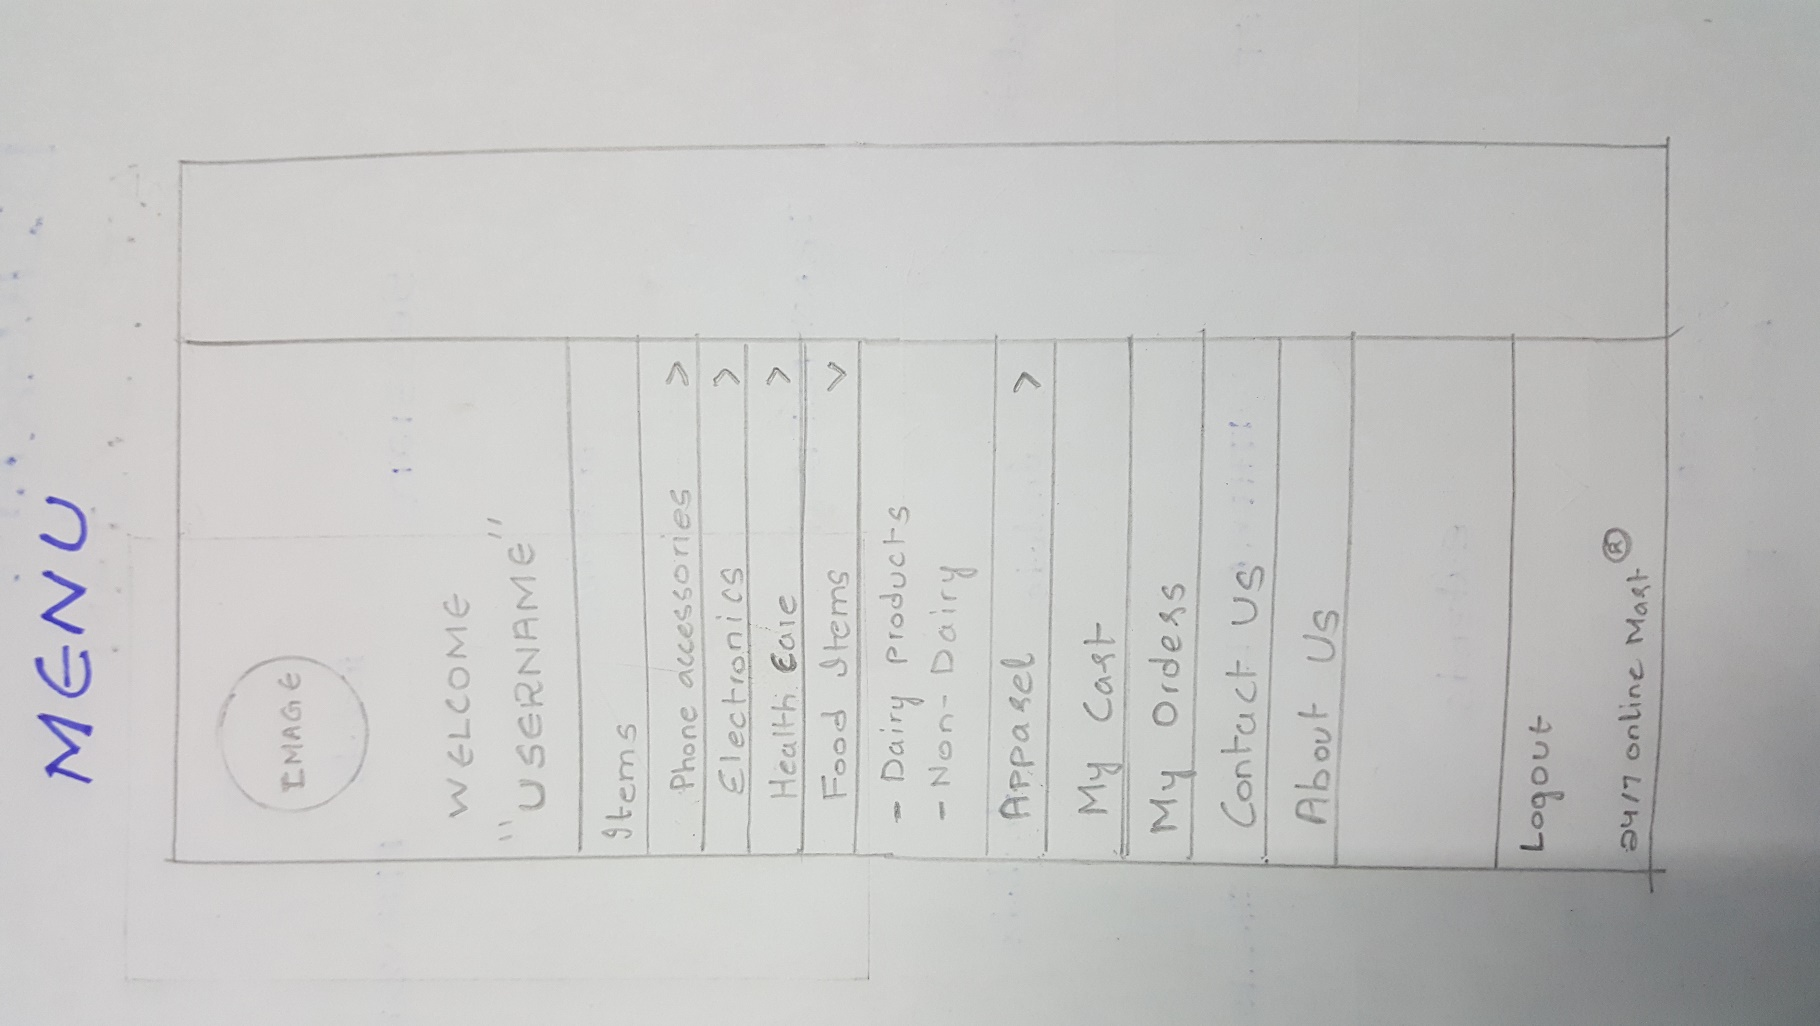 MENU
IMAGE
WELCOME
"USERNAME"
Items
Phone accessories >
Electronics >
Health Care >
Food Items <
- Dairy products
- Non-Dairy
Apparel >
My Cart
My Orders
Contact Us
About Us
Logout
24/7 online Mart ®